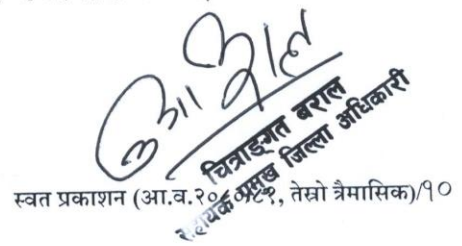 चित्राङ्गत बराल
सहायक प्रमुख जिल्ला अधिकारी
स्वत प्रकाशन (आ.व.२०८०/८१, तेस्रो त्रैमासिक)/१०